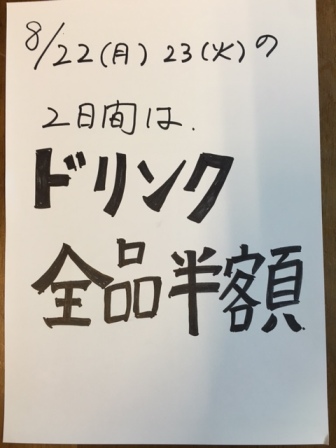 8/22(月) 23(火)の
2日間は.
ドリンク
全品半額